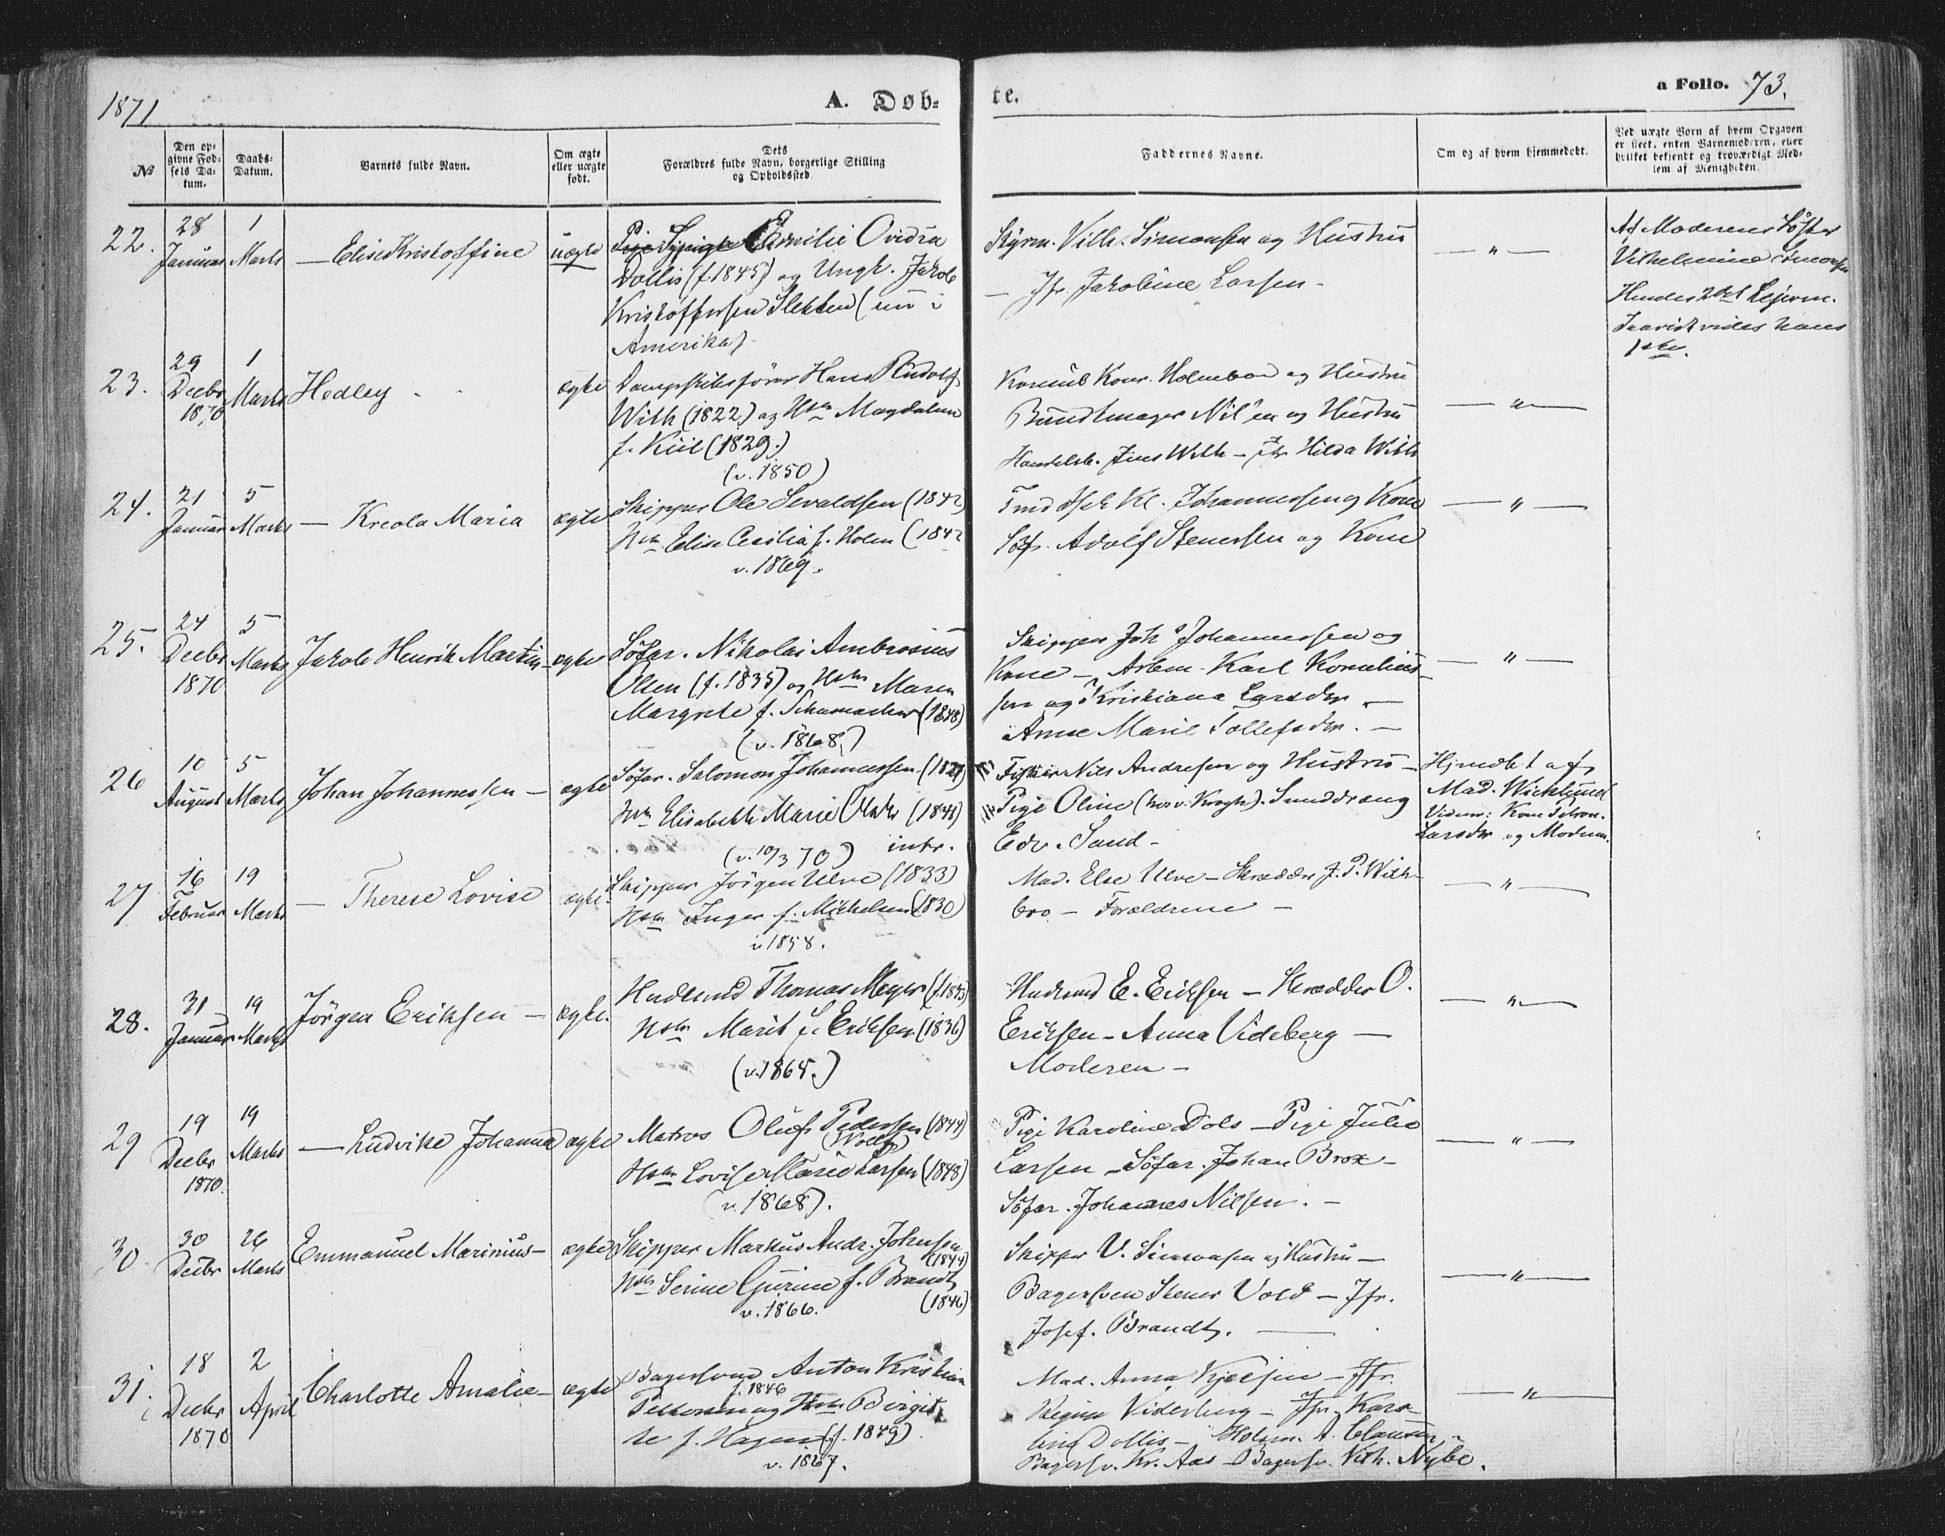 1871
A. Døb-
te.
a Follo. 73.
№
Den op-
givne Fød-
sels Da-
tum.
Daabs-
Datum.
Barnets fulde Navn.
Om ægte
eller uægte
født.
Dets
Forældres fulde Navn, borgerlige Stilling
og Opholdssted.
Faddernes Navne.
Om og af hvem hjemmedøbt.
Ved uægte Børn af hvem Opgaven
er skeet, enten Barnemoderen, eller
hvilket bekjendt og troværdigt Med-
lem af Menigheden.
22.
28
Januar
1
Marts
— Elise Kristoffine
uægte
Emilie Ovidia
Dollis (f. 1845) og Ungk. Jakob
Kristoffersen Slekken (nu i
Amerika)
Vilh. Simonsen og Hustru
— Jfr. Jakobine Larsen -
— " —
Af Moderens Söster
Vilhelmine Simonsen
Hendes 2det Lejerm.
hans
1ste.
23.
29
Decbr
1870
1
Marts
Hedley
ægte
Dampskibsförer Hans Rudolf
With (1822) og Hstr Magdalena
f. Kiil (1829.)
(v. 1850)
Konsul Konr. Holmboe og Hustru
Bundtmager Nilsen og Hustru
Handelsb. Jens With — Jfr. Hilda With
— " —
24.
21
Januar
5
Marts
— Kreola Maria
ægte
Skipper Ole Sevaldsen (1842)
Hstr Elise Cecilia f. Holm (1842
v. 1869.
Kl. Johannessen og Kone
Söf. Adolf Stenersen og Kone
— " —
25.
24
Decbr
1870
5
Marts
Jakob Henrik Martin —
ægte
Söfar. Nikolai Ambrosius
Olsen (f. 1835) og Hstr Maren
Margrete f. Schumacher (1848)
(v. 1868,)
Skipper Johs Johannessen og
Kone — Arbm. Karl Kornelius-
sen og Kristiana Larsdtr. —
Anne Marie Tollefsdtr. —
— " —
26
10
August
5
Marts
Johan Johannessen —
ægte
Söfar. Salomon Johannessen
Hstr Elisabeth Marie Olsdtr (1844)
(v. 10/3 70) intr.
Fisker Nils Andresen og Hustru —
Pige Oline Sunddreng
Edv. Sand —
Hjmdöbt af
Mad. Wicklund
Vidner: Kone
Larsdtr og Moderen
27
16
Februar
19
Marts
— Therese Lovise
ægte
Skipper Jörgen Ulve (1833)
Hstr Inger f. Mikkelsen (1830)
v. 1858.
Mad. Else Ulve — Skrædder J. P. With-
bro — Forældrene —
— " —
28.
31
Januar
19
Marts
Jörgen Eriksen —
ægte.
Hudsund Thomas Meyer
Hstr Marit f. Eriksen (1836)
(v. 1865.)
Hudsund E. Eriksen — Skrædder O.
Eriksen — Anna Videberg —
Moderen —
— " —
29
19
Decbr
1870.
19
Marts
— Ludvike Johanna
ægte
Matros Oluf Pedersen (1844)
(Wolf)
Hstr Lovise Marie Larsen (1848)
(v. 1868).
Pige Karoline Dols — Pige Julie
Larsen — Söfar. Johan Brox —
Söfar. Johannes Nilsen. —
— " —
30
30
Decbr
26
Marts
Emmanuel Marinius —
ægte
Skipper Markus Andr. Johnsen
(1844)
Hstr Serine Gurine f. Brandt
(1846)
v. 1866.
Skipper V. Simonsen og Hustru —
Bagersven Stener Vold — Jfr.
Josef. Brandt. —
— " —
31.
18
Decbr
1870
2
April
Charlotte Amalie —
ægte
Bagersvend Anton Kristian
f. 1846
Pettersen og Hstr Birgit
te f. Hagen (f. 1849).
v. 1867.
Mad. Anna Kjelsen — Jfr.
Regine Videberg — Jfr. Karo-
line Dollis — A. Clausen —
Bagersv. Kr. Aas — Bagersv. Vilh. Nybo.
— " —